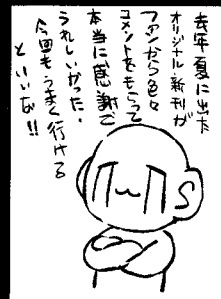 去年夏に出た
オリジナル新刊が
ファンから色々
コメントをもらって
本当に感謝で
うれしいかった。
今回もうまく行ける
といいな!!
S